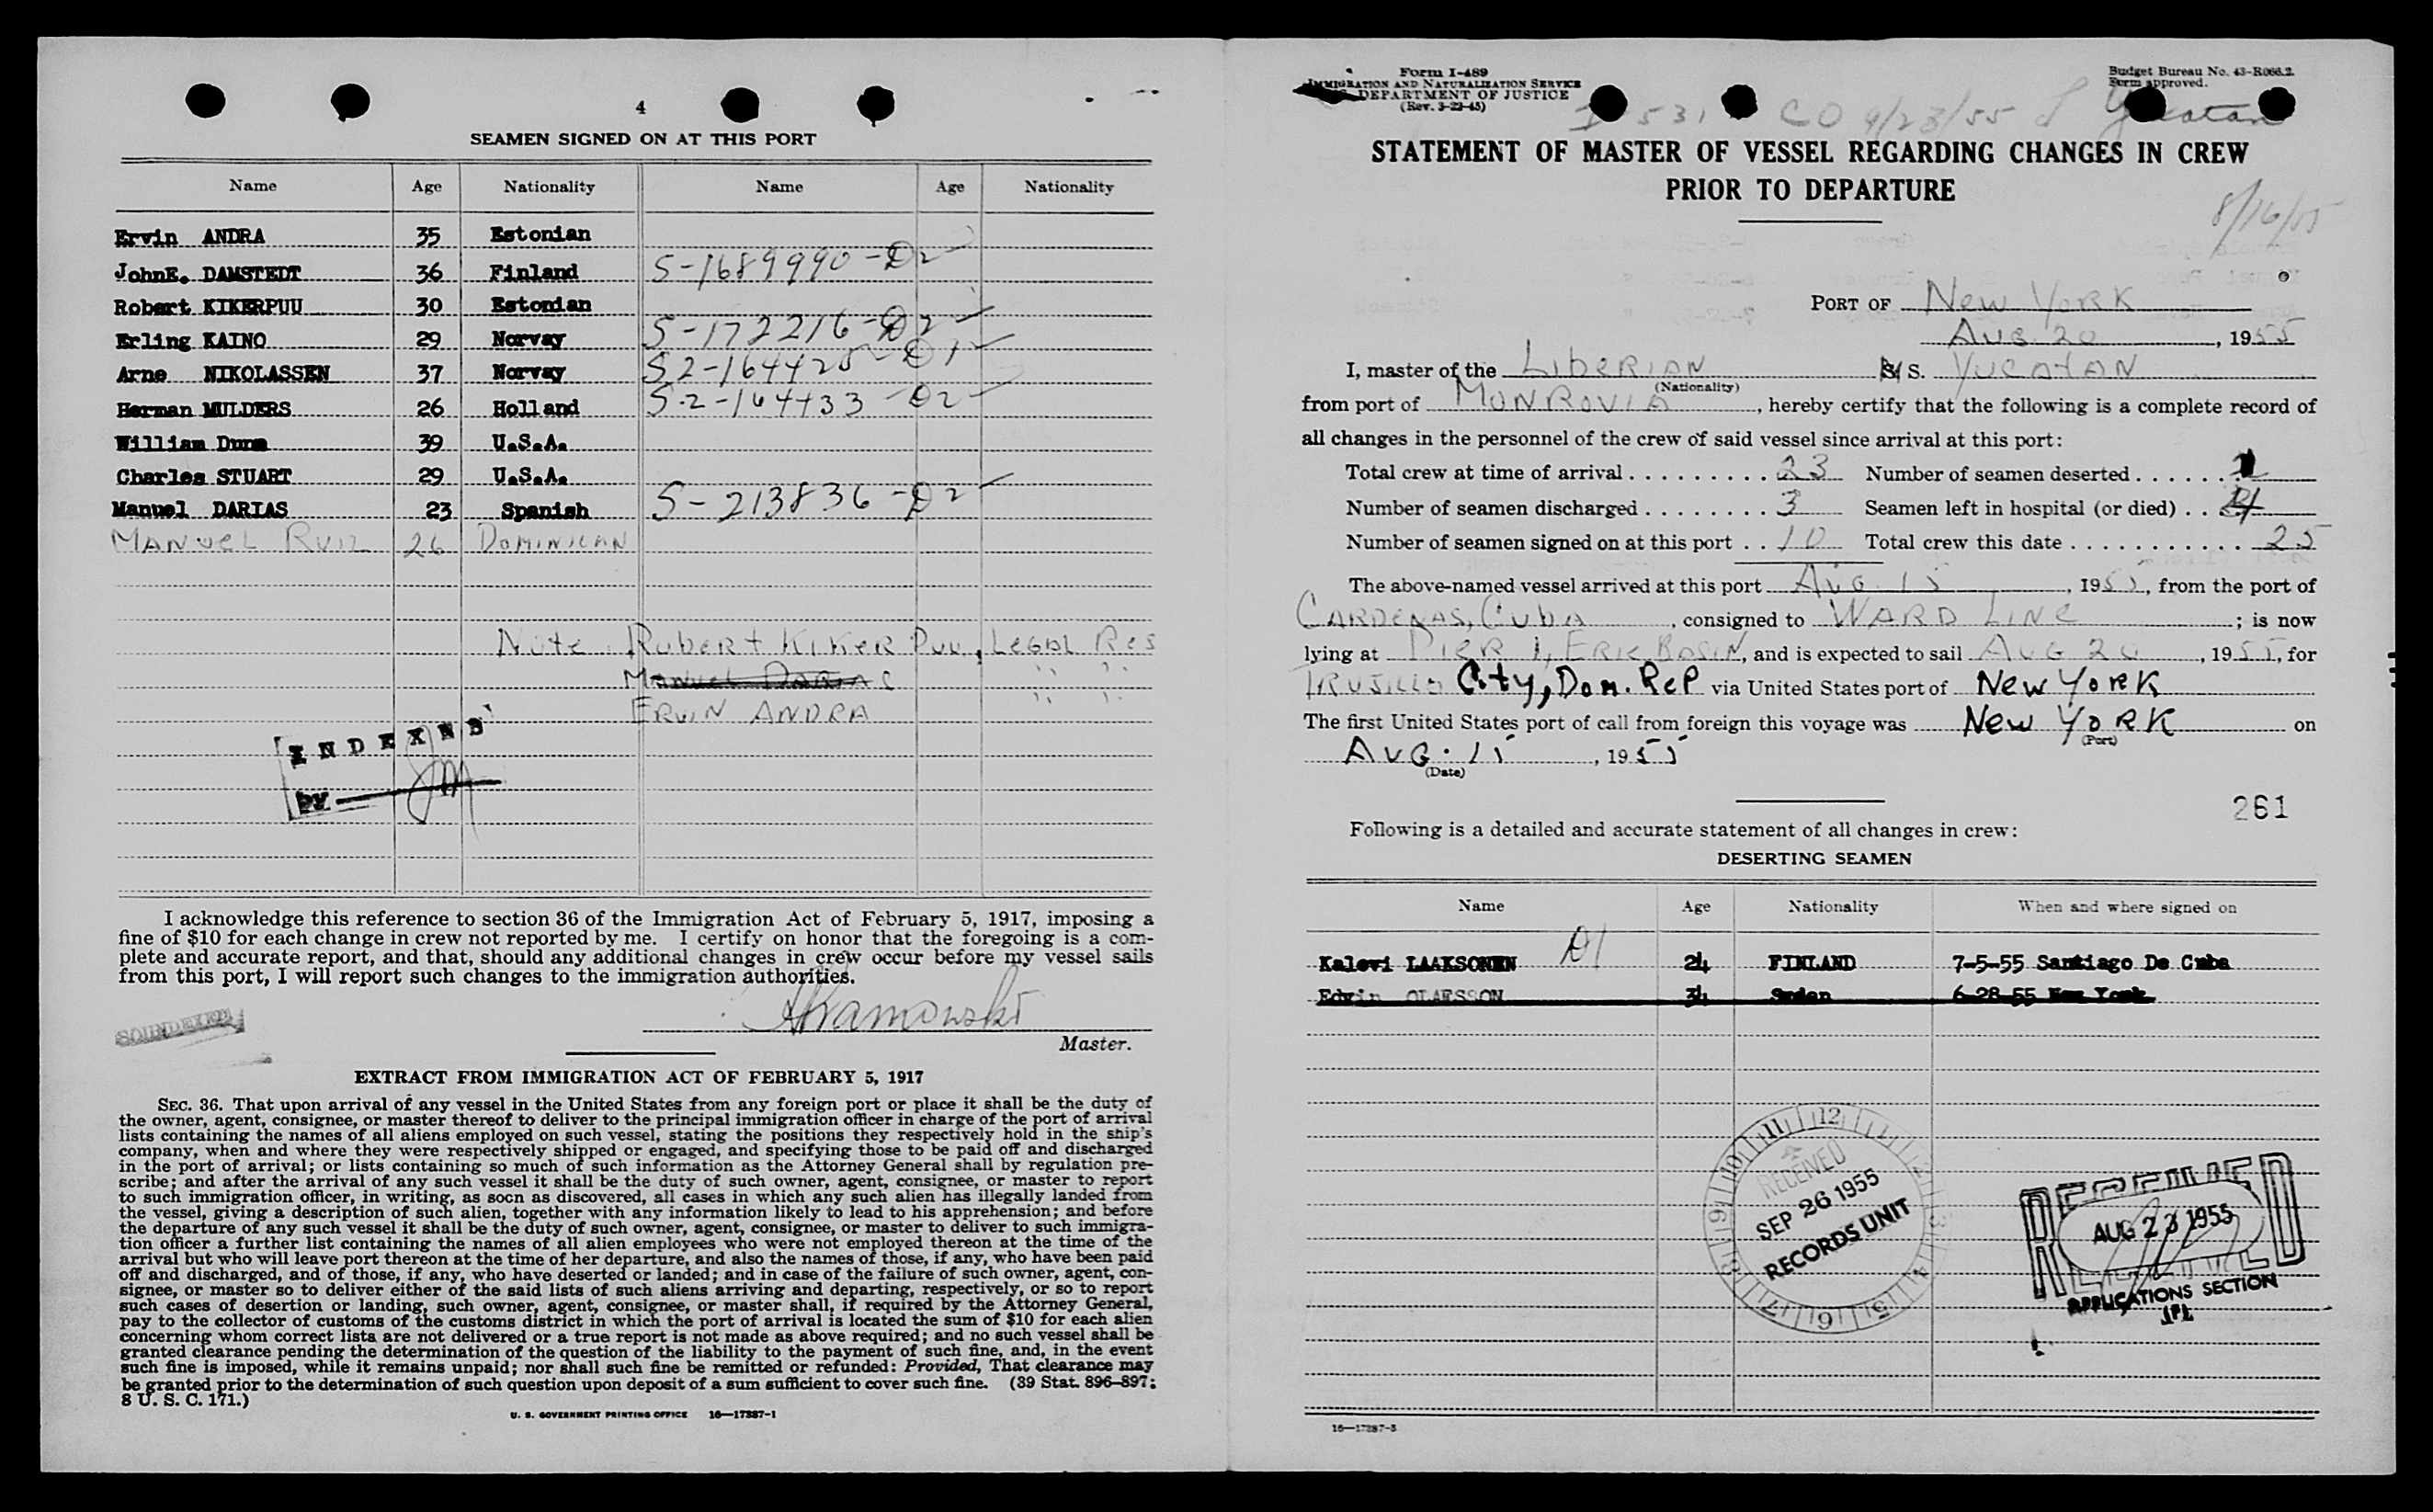 4
SEAMEN SIGNED ON AT THIS PORT
Name Age Nationality Name Age Nationality
Ervin ANDRA 35 Estonian
JohnE. DAMSTEDT 36 Finland S-1689990-D2
Robert KIKERPUU 30 Estonian
Erling KAINO 29 Norvay S-172216-D2
Arne NIKOLASSEN 37 Norvay S2-164425-D1
Herman MULDERS 26 Holland S-2-164433-D2
William Dunn 39 U.S.A.
Charles STUART 29 U.S.A.
Manuel DARIAS 23 Spanish S-213836-D2
MANUEL RUIZ 26 DOMINICAN
Note Robert KIKER PUU, LEGAL RES
MANUEL DARIAS " "
ERVIN ANDRA " "
INDEXED
by
I acknowledge this reference to section 36 of the Immigration Act of February 5, 1917, imposing a
fine of $10 for each change in crew not reported by me. I certify on honor that the foregoing is a com-
plete and accurate report, and that, should any additional changes in crew occur before my vessel sails
from this port, I will report such changes to the immigration authorities.
SOUNDEXED
Master.
EXTRACT FROM IMMIGRATION ACT OF FEBRUARY 5, 1917
SEC. 36. That upon arrival of any vessel in the United States from any foreign port or place it shall be the duty of
the owner, agent, consignee, or master thereof to deliver to the principal immigration officer in charge of the port of arrival
lists containing the names of all aliens employed on such vessel, stating the positions they respectively hold in the ship's
company, when and where they were respectively shipped or engaged, and specifying those to be paid off and discharged
in the port of arrival; or lists containing so much of such information as the Attorney General shall by regulation pre-
scribe; and after the arrival of any such vessel it shall be the duty of such owner, agent, consignee, or master to report
to such immigration officer, in writing, as soon as discovered, all cases in which any such alien has illegally landed from
the vessel, giving a description of such alien, together with any information likely to lead to his apprehension; and before
the departure of any such vessel it shall be the duty of such owner, agent, consignee, or master to deliver to such immigra-
tion officer a further list containing the names of all alien employees who were not employed thereon at the time of the
arrival but who will leave port thereon at the time of her departure, and also the names of those, if any, who have been paid
off and discharged, and of those, if any, who have deserted or landed; and in case of the failure of such owner, agent, con-
signee, or master so to deliver either of the said lists of such aliens arriving and departing, respectively, or so to report
such cases of desertion or landing, such owner, agent, consignee, or master shall, if required by the Attorney General,
pay to the collector of customs of the customs district in which the port of arrival is located the sum of $10 for each alien
concerning whom correct lists are not delivered or a true report is not made as above required; and no such vessel shall be
granted clearance pending the determination of the question of the liability to the payment of such fine, and, in the event
such fine is imposed, while it remains unpaid; nor shall such fine be remitted or refunded: Provided, That clearance may
be granted prior to the determination of such question upon deposit of a sum sufficient to cover such fine. (39 Stat. 896-897;
8 U. S. C. 171.)
U. S. GOVERNMENT PRINTING OFFICE 16—17887-1
Form I-489
IMMIGRATION AND NATURALIZATION SERVICE
DEPARTMENT OF JUSTICE
(Rev. 3-22-45)
Budget Bureau No. 43-R066.2.
Form approved.
I 531 CO 9/28/55 Yucatan
STATEMENT OF MASTER OF VESSEL REGARDING CHANGES IN CREW
PRIOR TO DEPARTURE
8/16/55
PORT OF New YORK
AUG 20, 1955
I, master of the LIBERIAN S. YUCATAN
(Nationality)
from port of MONROVIA, hereby certify that the following is a complete record of
all changes in the personnel of the crew of said vessel since arrival at this port:
Total crew at time of arrival 23 Number of seamen deserted
Number of seamen discharged 3 Seamen left in hospital (or died)
Number of seamen signed on at this port 10 Total crew this date 25
The above-named vessel arrived at this port AUG. 15, 1955, from the port of
CARDENAS, CUBA, consigned to WARD LINE; is now
lying at PIER 1, ERIE BASIN, and is expected to sail AUG 20, 1955, for
TRUJILLO City, Dom. Rep via United States port of New YORK
The first United States port of call from foreign this voyage was New YORK on
(Port)
AUG. 15, 1955
(Date)
261
Following is a detailed and accurate statement of all changes in crew:
DESERTING SEAMEN
Name Age Nationality When and where signed on
Kalevi LAAKSONEN D1 24 FINLAND 7-5-55 Santiago De Cuba
Edvin OLAFSSON 34 Sveden 6-28-55 New York
RECEIVED
SEP 26 1955
RECORDS UNIT
RECEIVED
AUG 23 1955
APPLICATIONS SECTION
16—17887-3